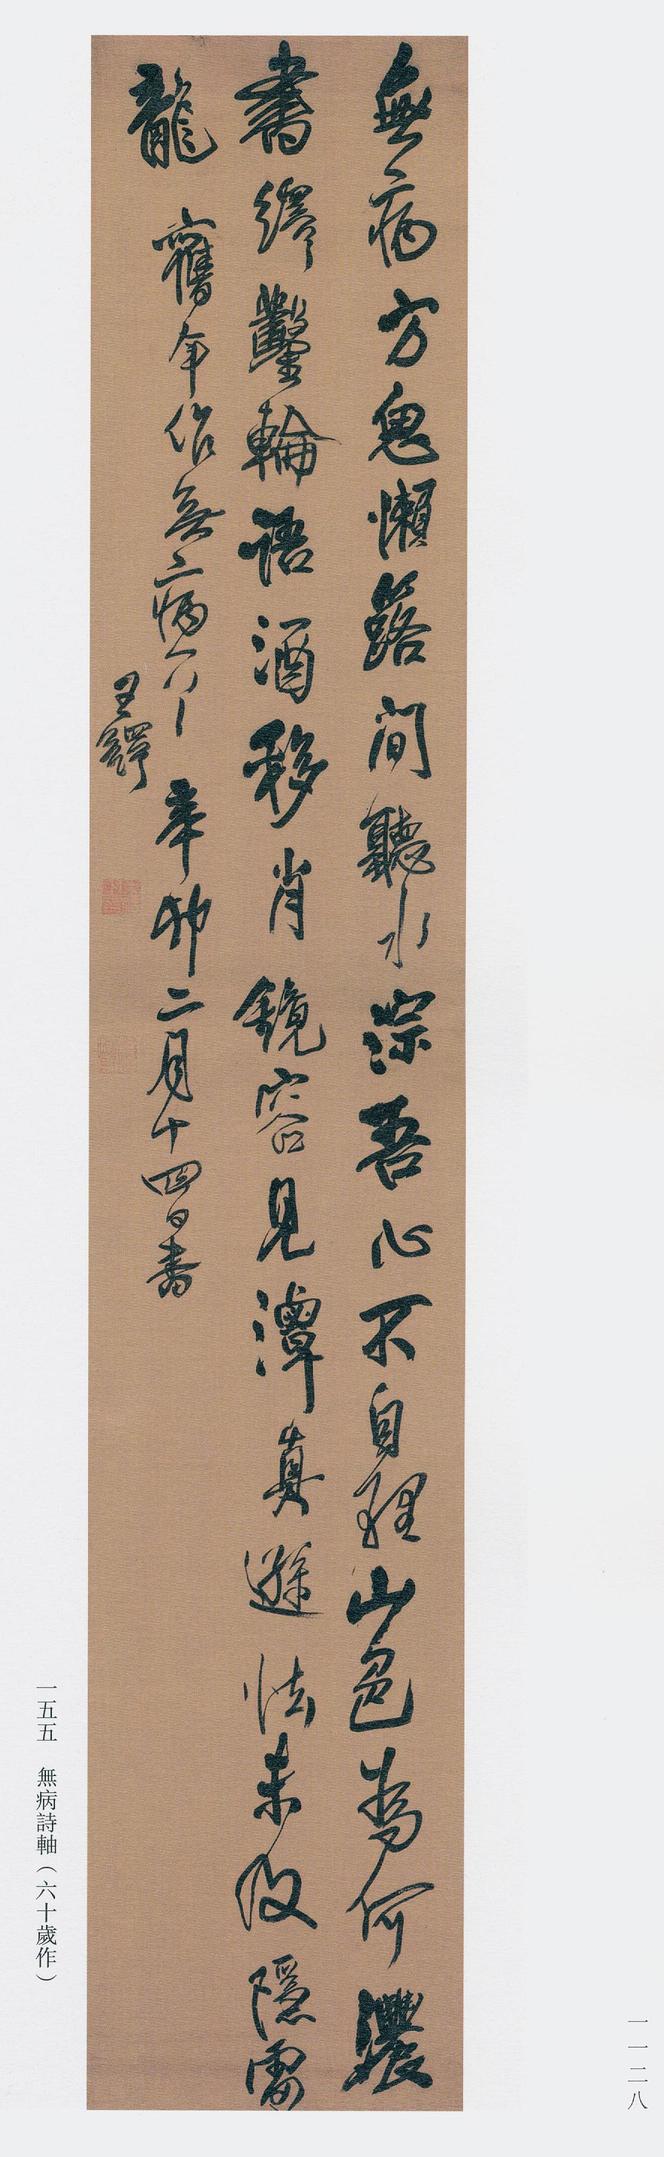 無病方懶簬間聽水淙吾心不自理山色為何濃
書繹鑿輪語酒移肖鏡容見潭真遜怯未收隱雷
龍 舊年作無病 辛卯二月十四日書
王鐸
一五五 無病詩軸(六十歲作)
一一二八